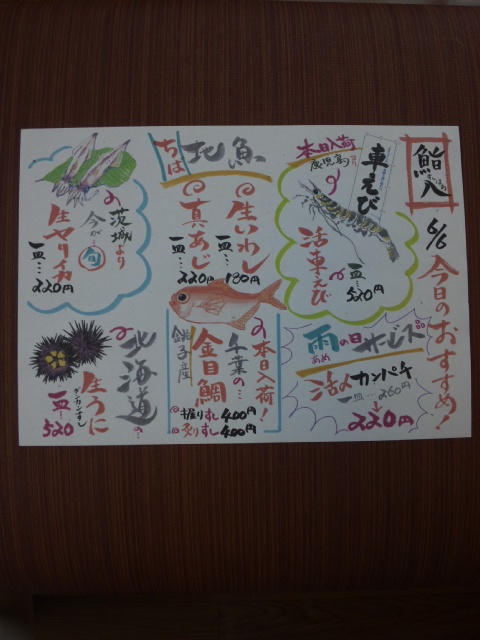 鮨八
6/6 今日のおすすめ!
本日入荷
鹿児島より
車えび
活車えび
一皿…520円
雨の日サービス品
あめ
活〆カンパチ
一皿…260円
→220円
ちば
地魚
生いわし
一皿…180円
真あじ
一皿…220円
本日入荷!
千葉の…
銚子産
金目鯛
握りすし400円
炙りすし400円
茨城より
今が…旬
生ヤリイカ
一皿…220円
北海道の…
生うに
グンカンすし
一皿…520